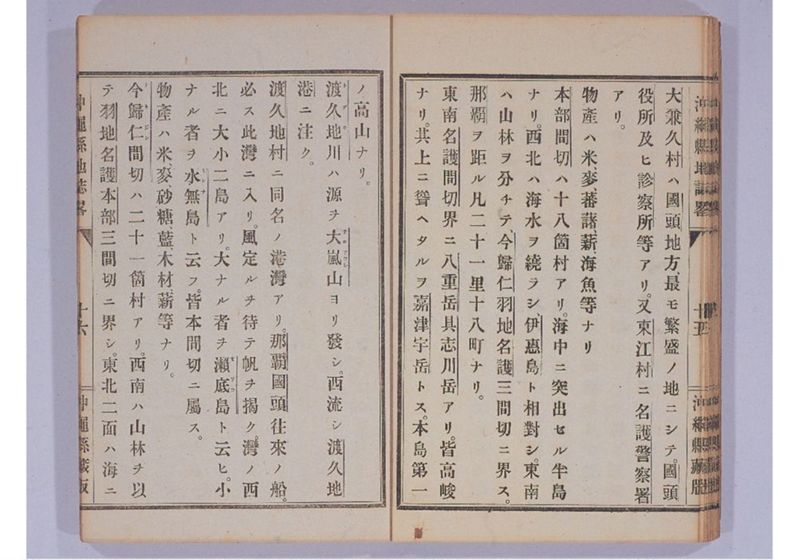 大兼久村ハ國頭地方、最モ繁盛ノ地ニシテ、國頭
役所及ヒ診察所等アリ。又東江村ニ名護警察署
アリ。
物產ハ米、麥、蕃藷、薪、海魚等ナリ
本部間切ハ十八箇村アリ。海中ニ突出セル半島
ナリ。西北ハ海水ヲ繞ラシ、伊惠島ト相對シ。東南
ハ山林ヲ分チテ今歸仁羽地名護三間切ニ界ス。
那覇ヲ距ル凡二十一里十八町ナリ。
東南名護間切界ニ八重岳具志川岳アリ。皆高峻
ナリ。其上ニ聳ヘタルヲ嘉津宇岳トス。本島第一
沖繩縣地誌畧
十五
沖繩縣藏版
ノ高山ナリ。
渡久地川ハ源ヲ大嵐山ヨリ發シ。西流シ渡久地
港ニ注ク。
渡久地村ニ同名ノ港灣アリ。那覇國頭往來ノ船。
必ス此灣ニ入リ。風定ルヲ待テ帆ヲ揚ク。灣ノ西
北ニ大小二島アリ。大ナル者ヲ瀨底島ト云ヒ。小
ナル者ヲ水無島ト云フ。皆本間切ニ屬ス。
物產ハ米、麥、砂糖、藍、木材、薪等ナリ。
今歸仁間切ハ二十一箇村アリ。西南ハ山林ヲ以
テ羽地名護本部三間切ニ界シ。東北二面ハ海ニ
沖繩縣地誌畧
十六
沖繩縣藏版